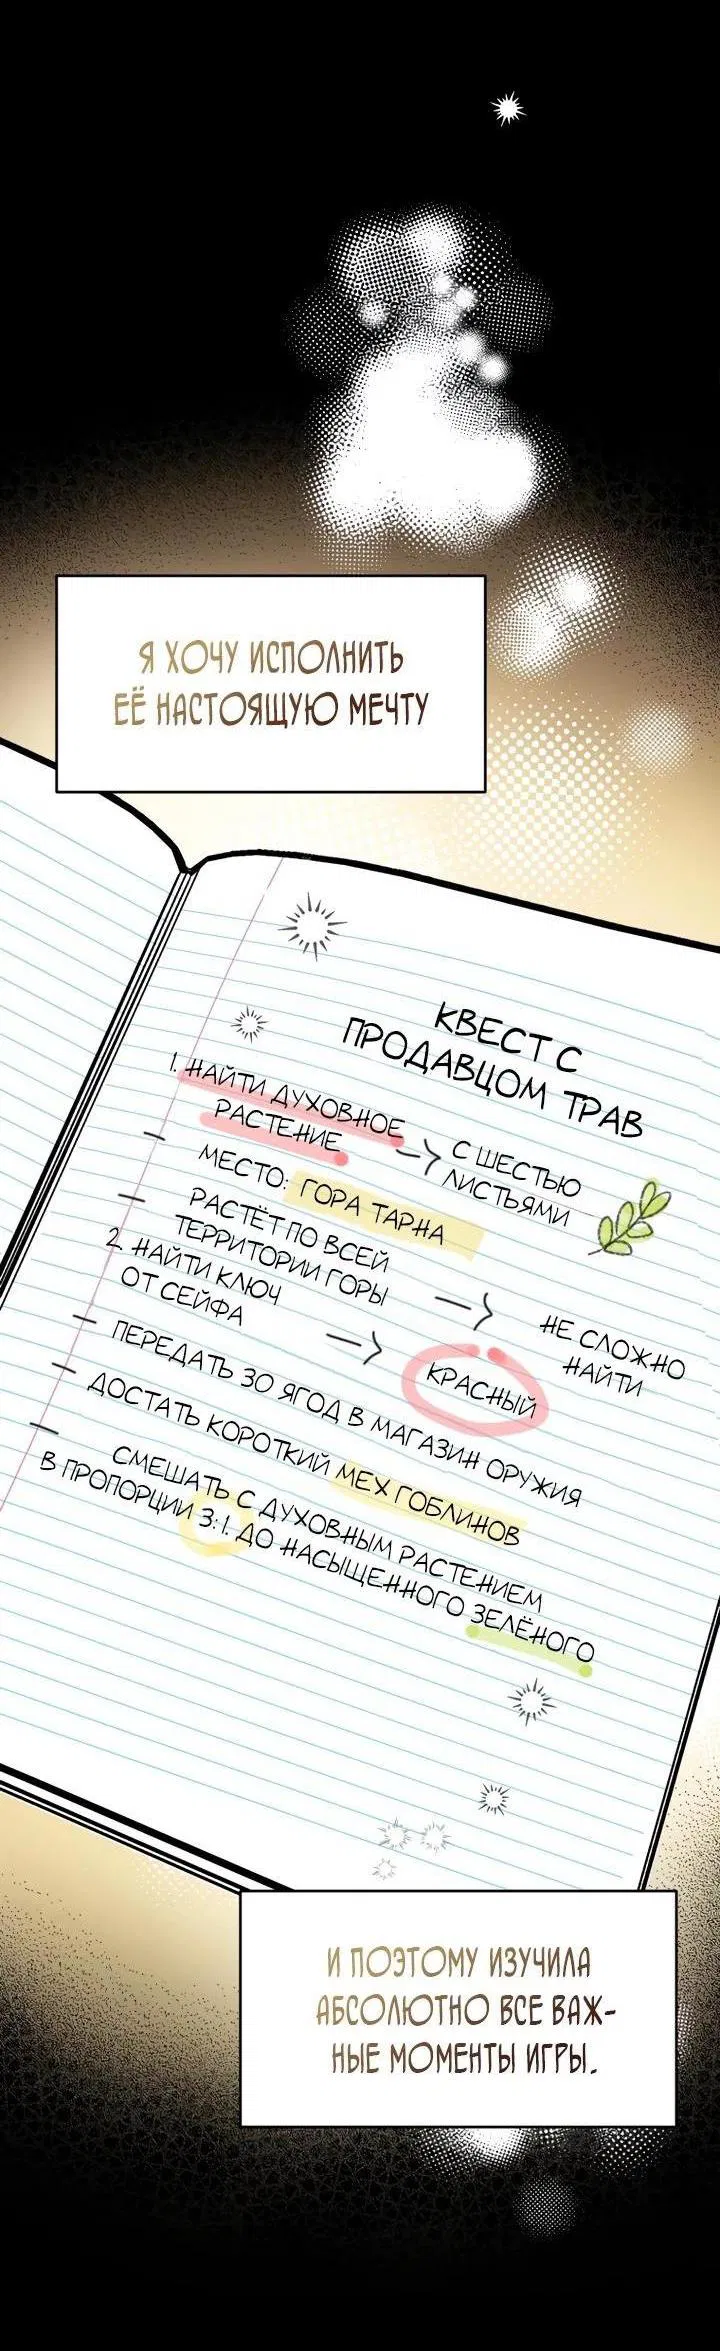 Я ХОЧУ ИСПОЛНИТЬ
ЕЁ НАСТОЯЩУЮ МЕЧТУ
КВЕСТ С
ПРОДАВЦОМ ТРАВ
1. НАЙТИ ДУХОВНОЕ
РАСТЕНИЕ
С ШЕСТЬЮ
ЛИСТЬЯМИ
МЕСТО: ГОРА ТАРНА
РАСТЁТ ПО ВСЕЙ
ТЕРРИТОРИИ ГОРЫ
НЕ СЛОЖНО
НАЙТИ
2. НАЙТИ КЛЮЧ
ОТ СЕЙФА
КРАСНЫЙ
ПЕРЕДАТЬ 30 ЯГОД В МАГАЗИН ОРУЖИЯ
ДОСТАТЬ КОРОТКИЙ МЕХ ГОБЛИНОВ
СМЕШАТЬ С ДУХОВНЫМ РАСТЕНИЕМ
В ПРОПОРЦИИ 3:1. ДО НАСЫЩЕННОГО ЗЕЛЁНОГО
И ПОЭТОМУ ИЗУЧИЛА
АБСОЛЮТНО ВСЕ ВАЖ-
НЫЕ МОМЕНТЫ ИГРЫ.